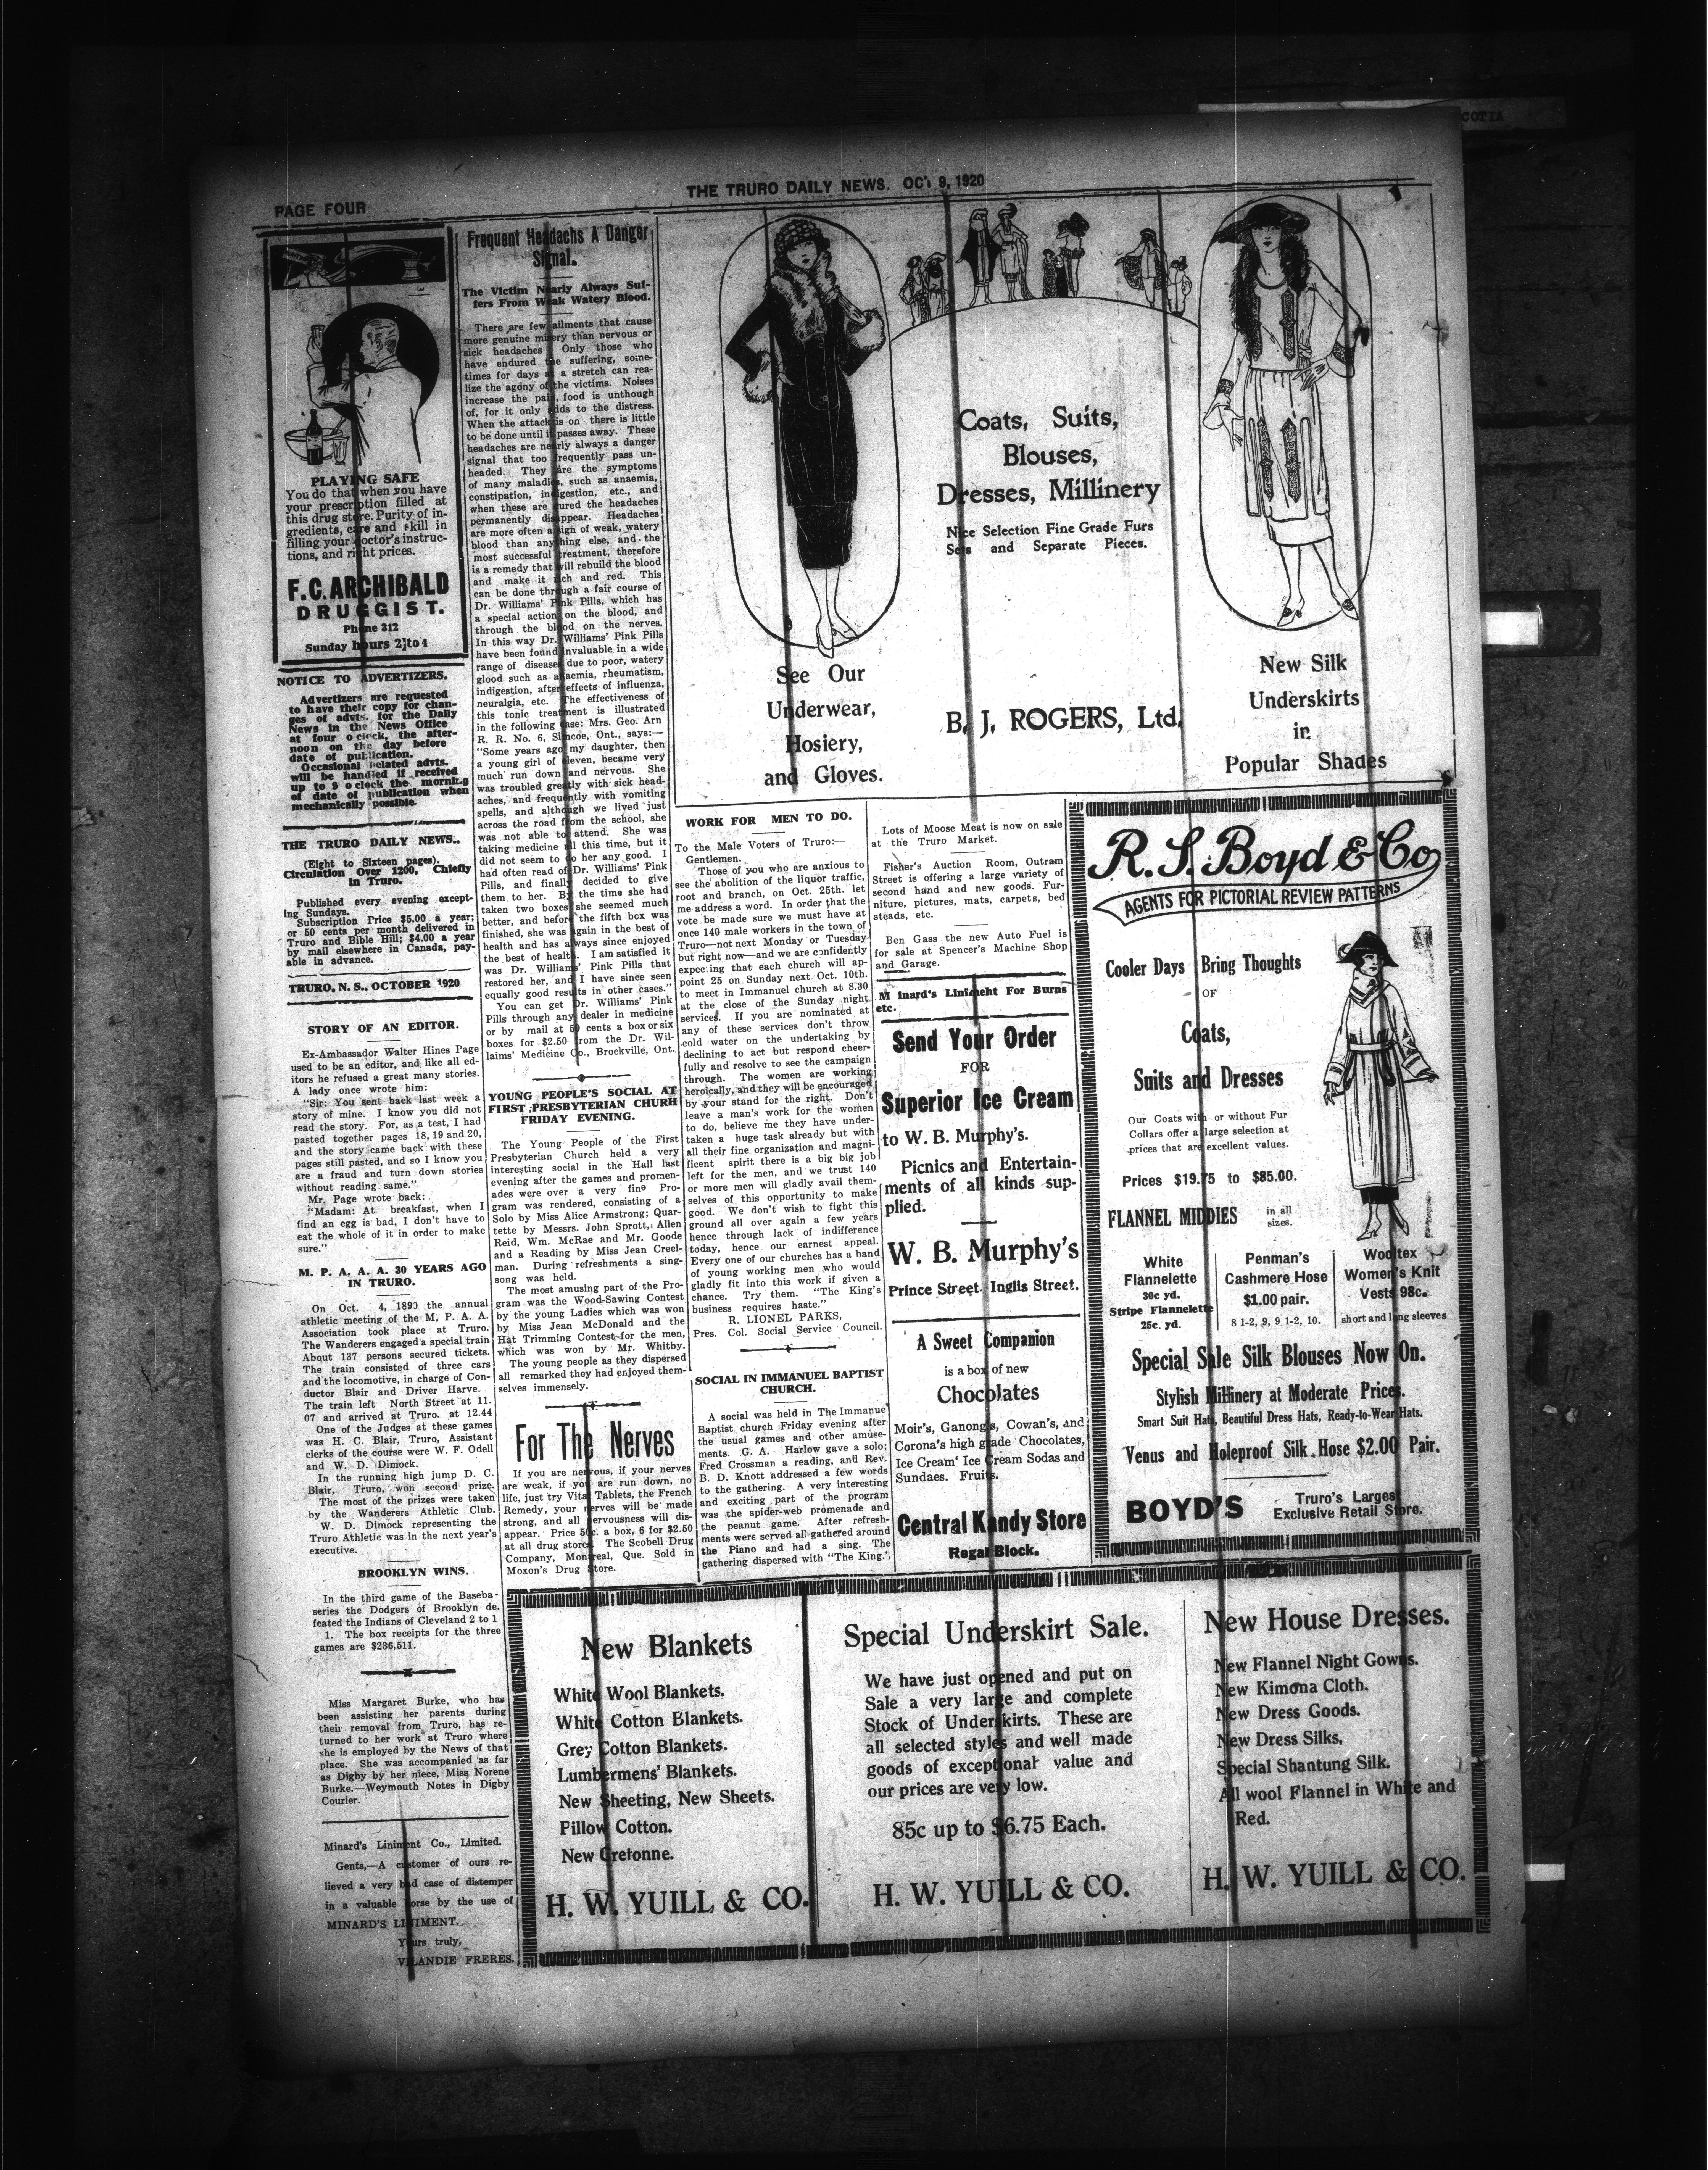 COTIA
PAGE FOUR
THE TRURO DAILY NEWS. OCT 9, 1920
PLAYING SAFE
You do that when you have
your prescription filled at
this drug store. Purity of in-
gredients, care and skill in
filling your doctor's instruc-
tions, and right prices.
F. C. ARCHIBALD
DRUGGIST.
Phone 312
Sunday hours 2 to 4
NOTICE TO ADVERTIZERS.
Advertizers are requested
to have their copy for chan-
ges of advts. for the Daily
News in the News Office
at four o clock, the after-
noon on the day before
date of publication.
Occasional belated advts.
will be handled if received
up to 9 o clock the morning
of date of publication when
mechanically possible.
THE TRURO DAILY NEWS..
(Eight to Sixteen pages).
Circulation Over 1200, Chiefly
in Truro.
Published every evening except-
ing Sundays.
Subscription Price $5.00 a year;
or 50 cents per month delivered in
Truro and Bible Hill; $4.00 a year
by mail elsewhere in Canada, pay-
able in advance.
TRURO, N. S., OCTOBER 1920
STORY OF AN EDITOR.
Ex-Ambassador Walter Hines Page
used to be an editor, and like all ed-
itors he refused a great many stories.
A lady once wrote him:
"Sir: You sent back last week a
story of mine. I know you did not
read the story. For, as a test, I had
pasted together pages 18, 19 and 20,
and the story came back with these
pages still pasted, and so I know you
are a fraud and turn down stories
without reading same."
Mr. Page wrote back:
"Madam: At breakfast, when I
find an egg is bad, I don't have to
eat the whole of it in order to make
sure."
M. P. A. A. A. 30 YEARS AGO
IN TRURO.
On Oct. 4, 1890 the annual
athletic meeting of the M. P. A. A.
Association took place at Truro.
The Wanderers engaged a special train
About 137 persons secured tickets.
The train consisted of three cars
and the locomotive, in charge of Con-
ductor Blair and Driver Harve.
The train left North Street at 11.
07 and arrived at Truro. at 12.44
One of the Judges at these games
was H. C. Blair, Truro, Assistant
clerks of the course were W. F. Odell
and W. D. Dimock.
In the running high jump D. C.
Blair, Truro, won second prize.
The most of the prizes were taken
by the Wanderers Athletic Club.
W. D. Dimock representing the
Truro Athletic was in the next year's
executive.
BROOKLYN WINS.
In the third game of the Baseba-
series the Dodgers of Brooklyn de.
feated the Indians of Cleveland 2 to 1
1. The box receipts for the three
games are $236,511.
Miss Margaret Burke, who has
been assisting her parents during
their removal from Truro, has re-
turned to her work at Truro where
she is employed by the News of that
place. She was accompanied as far
as Digby by her niece, Miss Norene
Burke.—Weymouth Notes in Digby
Courier.
Minard's Liniment Co., Limited.
Gents,—A customer of ours re-
lieved a very bad case of distemper
in a valuable horse by the use of
MINARD'S LINIMENT.
Yours truly,
VILANDIE FRERES.
Frequent Headachs A Danger
Signal.
The Victim Nearly Always Suf-
fers From Weak Watery Blood.
There are few ailments that cause
more genuine misery than nervous or
sick headaches Only those who
have endured the suffering, some-
times for days at a stretch can rea-
lize the agony of the victims. Noises
increase the pain, food is unthough
of, for it only adds to the distress.
When the attack is on there is little
to be done until it passes away. These
headaches are nearly always a danger
signal that too frequently pass un-
headed. They are the symptoms
of many maladies, such as anaemia,
constipation, indigestion, etc., and
when these are cured the headaches
permanently disappear. Headaches
are more often a sign of weak, watery
blood than anything else, and the
most successful treatment, therefore
is a remedy that will rebuild the blood
and make it rich and red. This
can be done through a fair course of
Dr. Williams' Pink Pills, which has
a special action on the blood, and
through the blood on the nerves.
In this way Dr. Williams' Pink Pills
have been found invaluable in a wide
range of diseases due to poor, watery
glood such as anaemia, rheumatism,
indigestion, after effects of influenza,
neuralgia, etc. The effectiveness of
this tonic treatment is illustrated
in the following case: Mrs. Geo. Arn
R. R. No. 6, Simcoe, Ont., says:—
"Some years ago my daughter, then
a young girl of eleven, became very
much run down and nervous. She
was troubled greatly with sick head-
aches, and frequently with vomiting
spells, and although we lived just
across the road from the school, she
was not able to attend. She was
taking medicine all this time, but it
did not seem to do her any good. I
had often read of Dr. Williams' Pink
Pills, and finally decided to give
them to her. By the time she had
taken two boxes she seemed much
better, and before the fifth box was
finished, she was again in the best of
health and has always since enjoyed
the best of health. I am satisfied it
was Dr. Williams' Pink Pills that
restored her, and I have since seen
equally good results in other cases."
You can get Dr. Williams' Pink
Pills through any dealer in medicine
or by mail at 50 cents a box or six
boxes for $2.50 from the Dr. Wil-
laims' Medicine Co., Brockville, Ont.
YOUNG PEOPLE'S SOCIAL AT
FIRST PRESBYTERIAN CHURH
FRIDAY EVENING.
The Young People of the First
Presbyterian Church held a very
interesting social in the Hall last
evening after the games and promen-
ades were over a very fine Pro-
gram was rendered, consisting of a
Solo by Miss Alice Armstrong; Quar-
tette by Messrs. John Sprott, Allen
Reid, Wm. McRae and Mr. Goode
and a Reading by Miss Jean Creel-
man. During refreshments a sing-
song was held.
The most amusing part of the Pro-
gram was the Wood-Sawing Contest
by the young Ladies which was won
by Miss Jean McDonald and the
Hat Trimming Contest for the men,
which was won by Mr. Whitby.
The young people as they dispersed
all remarked they had enjoyed them-
selves immensely.
For The Nerves
If you are nervous, if your nerves
are weak, if you are run down, no
life, just try Vital Tablets, the French
Remedy, your nerves will be made
strong, and all nervousness will dis-
appear. Price 50c. a box, 6 for $2.50
at all drug stores. The Scobell Drug
Company, Montreal, Que. Sold in
Moxon's Drug Store.
Coats, Suits,
Blouses,
Dresses, Millinery
Nice Selection Fine Grade Furs
Sets and Separate Pieces.
See Our
Underwear,
Hosiery,
and Gloves.
B. J. ROGERS, Ltd.
New Silk
Underskirts
in
Popular Shades
WORK FOR MEN TO DO.
To the Male Voters of Truro:—
Gentlemen.
Those of you who are anxious to
see the abolition of the liquor traffic,
root and branch, on Oct. 25th. let
me address a word. In order that the
vote be made sure we must have at
once 140 male workers in the town of
Truro—not next Monday or Tuesday
but right now—and we are confidently
expecing that each church will ap-
point 25 on Sunday next Oct. 10th.
to meet in Immanuel church at 8:30
at the close of the Sunday night
services. If you are nominated at
any of these services don't throw
cold water on the undertaking by
declining to act but respond cheer-
fully and resolve to see the campaign
through. The women are working
heroically, and they will be encouraged
by your stand for the right. Don't
leave a man's work for the women
to do, believe me they have under-
taken a huge task already but with
all their fine organization and magni-
ficent spirit there is a big big job
left for the men, and we trust 140
or more men will gladly avail them-
selves of this opportunity to make
good. We don't wish to fight this
ground all over again a few years
hence through lack of indifference
today, hence our earnest appeal.
Every one of our churches has a band
of young working men who would
gladly fit into this work if given a
chance. Try them. "The King's
business requires haste."
R. LIONEL PARKS,
Pres. Col. Social Service Council.
SOCIAL IN IMMANUEL BAPTIST
CHURCH.
A social was held in The Immanue
Baptist church Friday evening after
the usual games and other amuse-
ments. G. A. Harlow gave a solo;
Fred Crossman a reading, and Rev.
B. D. Knott addressed a few words
to the gathering. A very interesting
and exciting part of the program
was the spider-web promenade and
the peanut game. After refresh-
ments were served all gathered around
the Piano and had a sing. The
gathering dispersed with "The King.".
Lots of Moose Meat is now on sale
at the Truro Market.
Fisher's Auction Room, Outram
Street is offering a large variety of
second hand and new goods. Fur-
niture, pictures, mats, carpets, bed
steads, etc.
Ben Gass the new Auto Fuel is
for sale at Spencer's Machine Shop
and Garage.
M inard's Liniment For Burns
etc.
Send Your Order
FOR
Superior Ice Cream
to W. B. Murphy's.
Picnics and Entertain-
ments of all kinds sup-
plied.
W. B. Murphy's
Prince Street. Inglis Street.
A Sweet Companion
is a box of new
Chocolates
Moir's, Ganong's, Cowan's, and
Corona's high grade Chocolates,
Ice Cream' Ice Cream Sodas and
Sundaes. Fruits.
Central Kandy Store
Regal Block.
R. S. Boyd & Co
AGENTS FOR PICTORIAL REVIEW PATTERNS
Cooler Days Bring Thoughts
OF
Coats,
Suits and Dresses
Our Coats with or without Fur
Collars offer a large selection at
prices that are excellent values.
Prices $19.75 to $85.00.
FLANNEL MIDDIES in all
sizes.
White
Flannelette
30c yd.
Stripe Flannelette
25c. yd.
Penman's
Cashmere Hose
$1.00 pair.
8 1-2, 9, 9 1-2, 10.
Wooltex
Women's Knit
Vests 98c.
short and long sleeves
Special Sale Silk Blouses Now On.
Stylish Millinery at Moderate Prices.
Smart Suit Hats, Beautiful Dress Hats, Ready-to-Wear Hats.
Venus and Holeproof Silk Hose $2.00 Pair.
BOYD'S
Truro's Largest
Exclusive Retail Store.
New Blankets
White Wool Blankets.
White Cotton Blankets.
Grey Cotton Blankets.
Lumbermens' Blankets.
New Sheeting, New Sheets.
Pillow Cotton.
New Cretonne.
H. W. YUILL & CO.
Special Underskirt Sale.
We have just opened and put on
Sale a very large and complete
Stock of Underskirts. These are
all selected styles and well made
goods of exceptional value and
our prices are very low.
85c up to $6.75 Each.
H. W. YUILL & CO.
New House Dresses.
New Flannel Night Gowns.
New Kimona Cloth.
New Dress Goods.
New Dress Silks,
Special Shantung Silk.
All wool Flannel in White and
Red.
H. W. YUILL & CO.